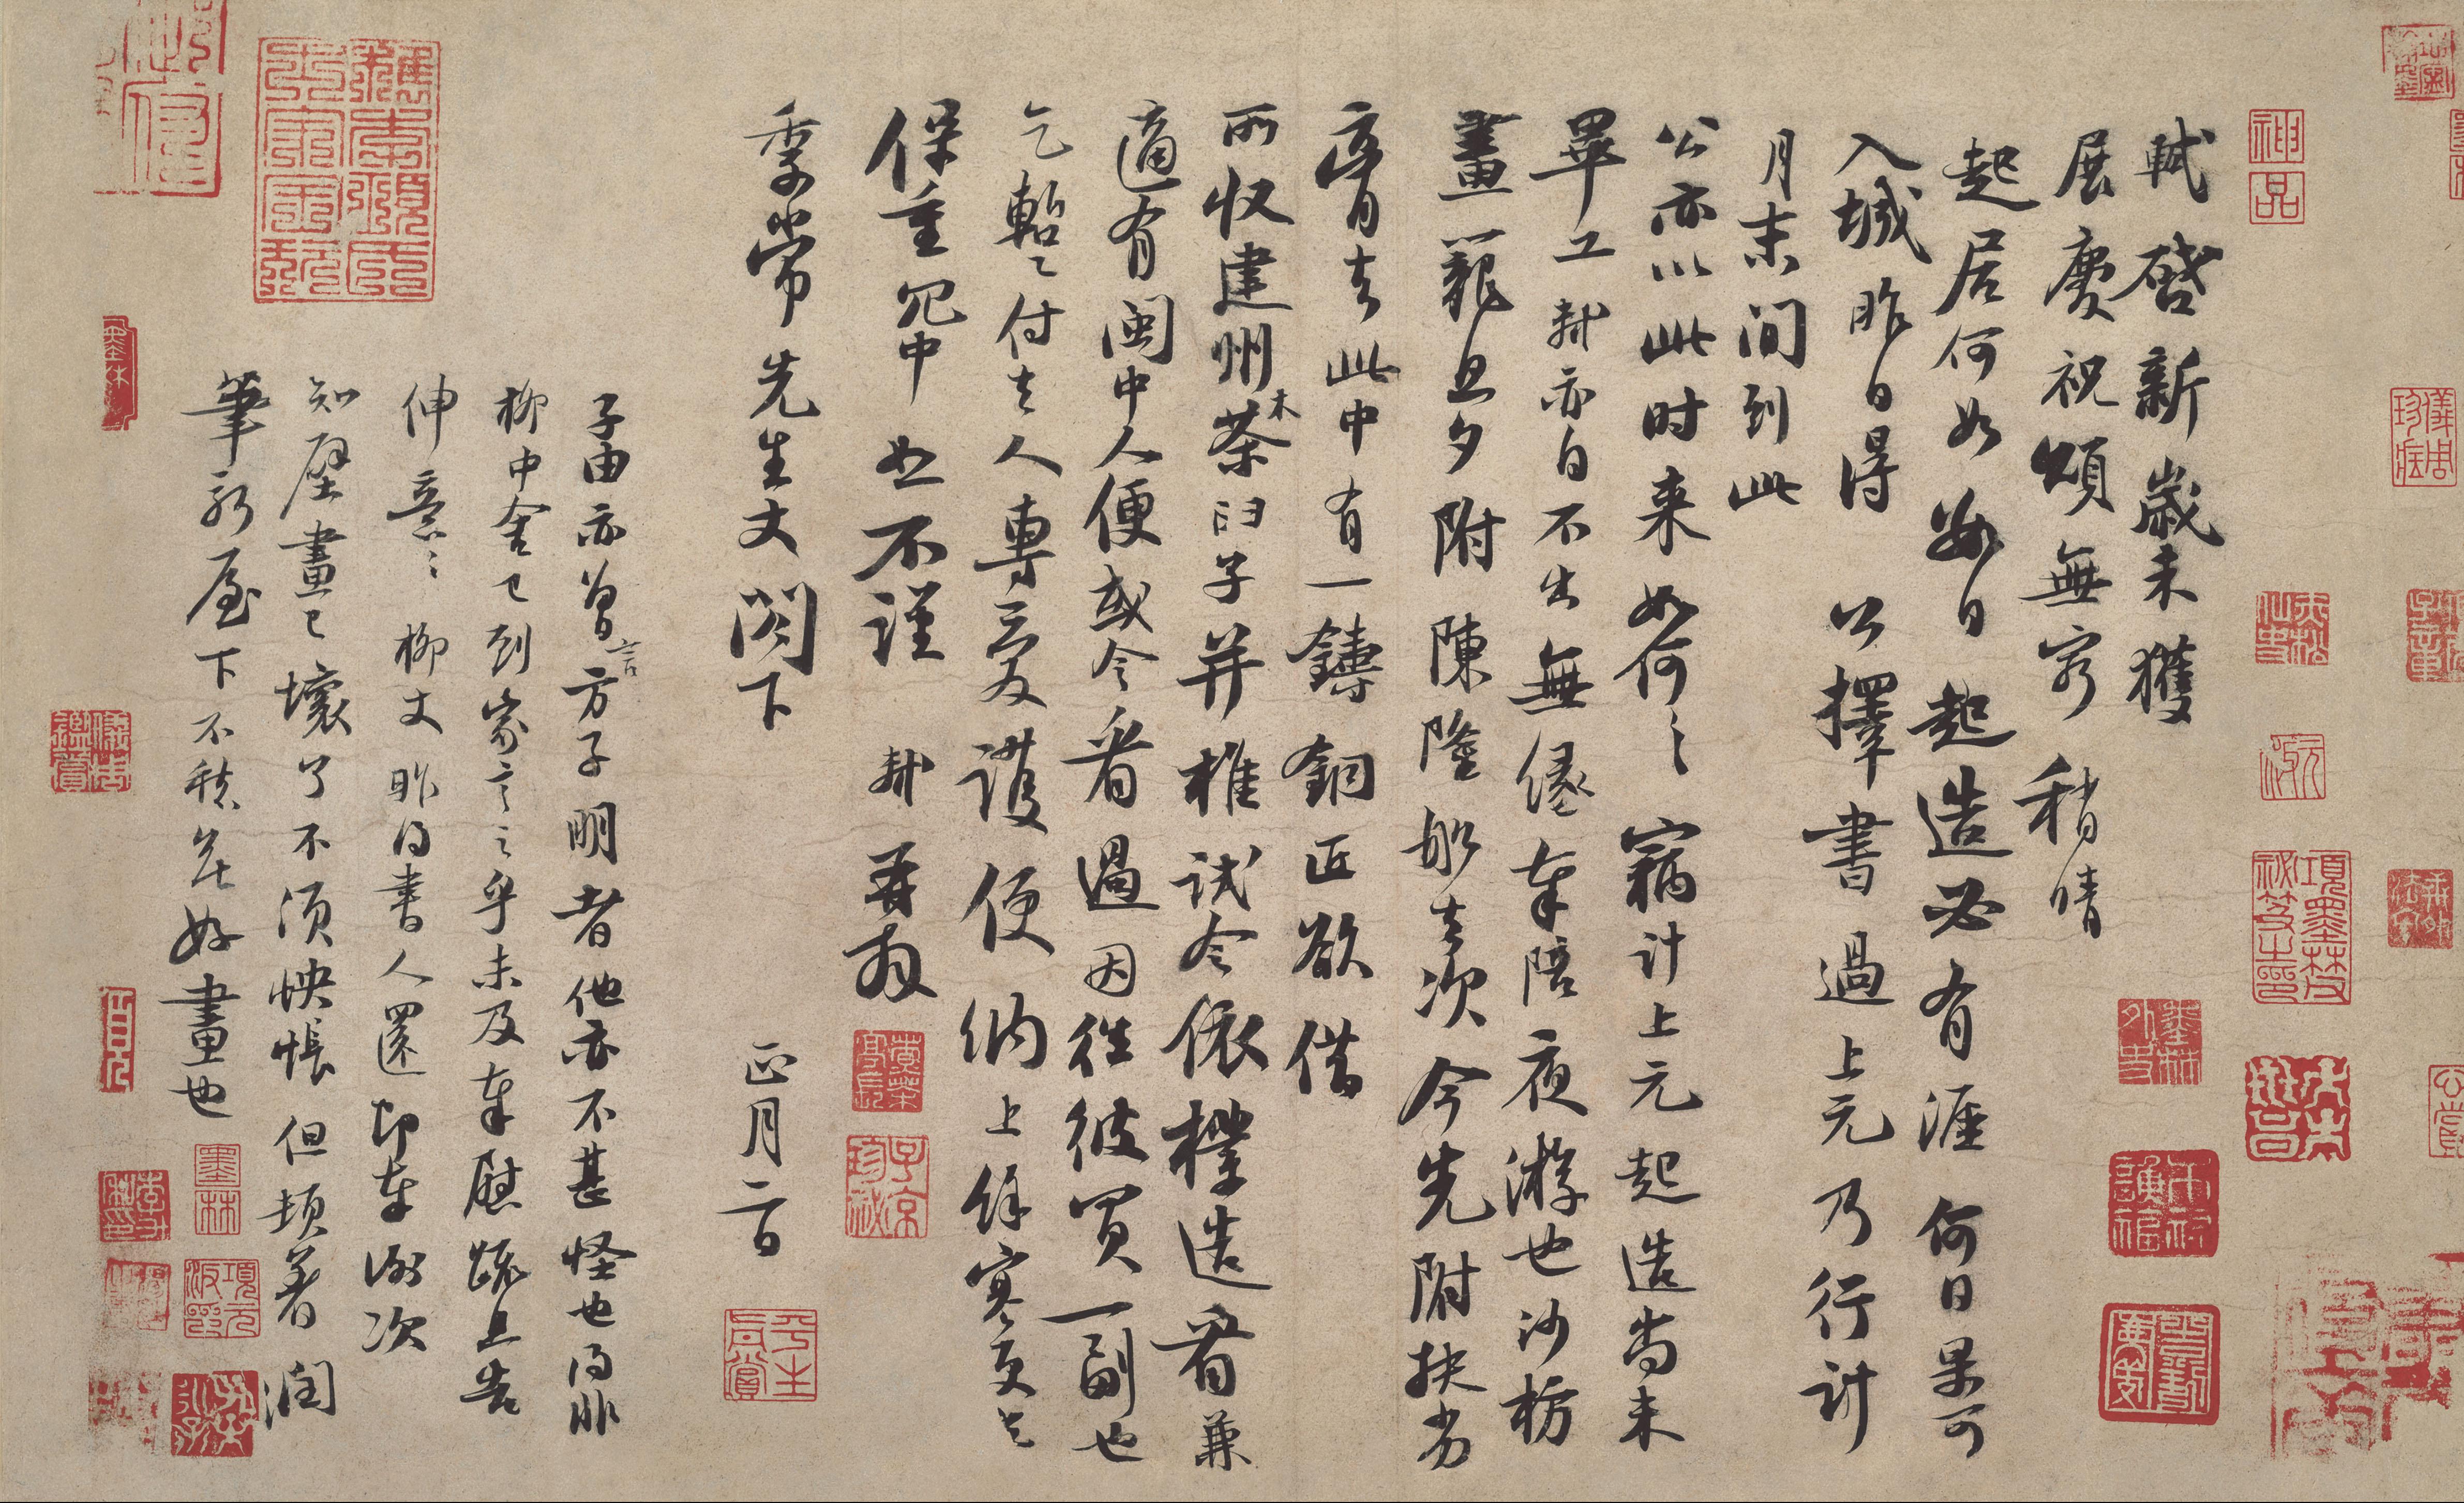 軾啓新歲未獲
展慶祝頌無窮稍晴
起居何如數日起造必有涯何日果可
入城昨日得公擇書過上元乃行計
月末間到此
公亦以此時來如何々竊計上元起造尚未
畢工軾亦自不出無緣奉陪夜游也沙枋
畫籠旦夕附陳隆船去次今先附扶劣
膏去此中有一鑄銅匠欲借
所收建州木茶臼子并椎試令依樣造看兼
適有閩中人便或令看過因往彼買一副也
乞暫付去人專愛護便納上餘寒更乞
保重冗中恕不謹軾再拜
季常先生丈閤下正月二日
子由亦曾言方子明者他亦不甚怪也得非
柳中舍已到家言之乎未及奉慰疏且告
伸意々柳丈昨得書人還即奉謝次
知壁畫已壞了不須怏悵但頓著潤
筆新屋下不愁無好畫也